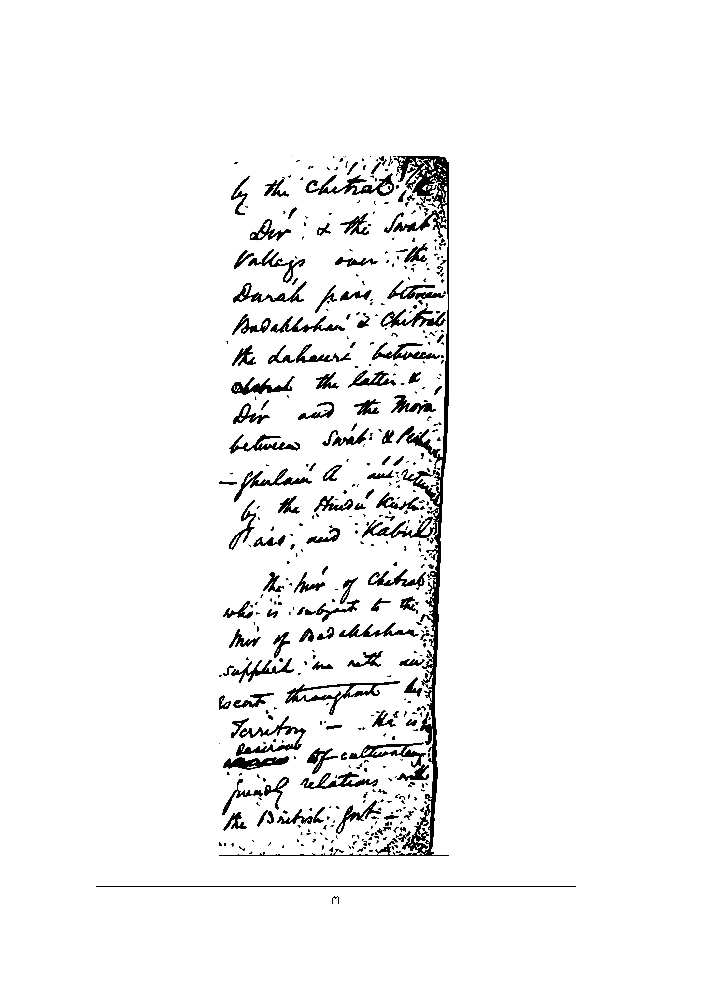 by the Chitral, the
Dir & the Swat
Valleys over the
Durah pass, between
Badakhshan & Chitral
the Lahauri between
the latter &
Dir and the Mora
between Swat & Peshawar
— Ghulam A and returned
by the Hindu Kush
Pass, and Kabul
The Mir of Chitral
who is subject to the
Mir of Badakhshan
supplied me with an
Escort throughout his
Territory — He is
desirous of cultivating
friendly relations with
the British Govt —